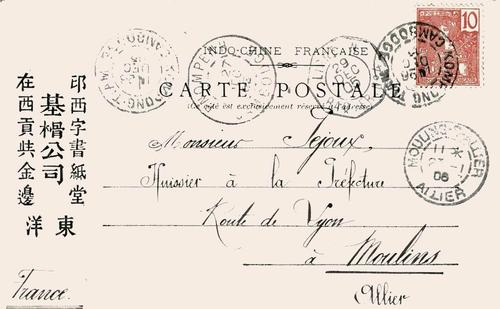 INDO-CHINE FRANÇAISE
CARTE POSTALE
(Ce côté est exclusivement réservé à l'adresse)
Monsieur Sejoux,
Huissier à la Préfecture
Route de Lyon
à Moulins
Allier
France.
印西字書紙堂
基榾公司
在西貢共金邊
東洋
10
MOULINS ALLIER
06